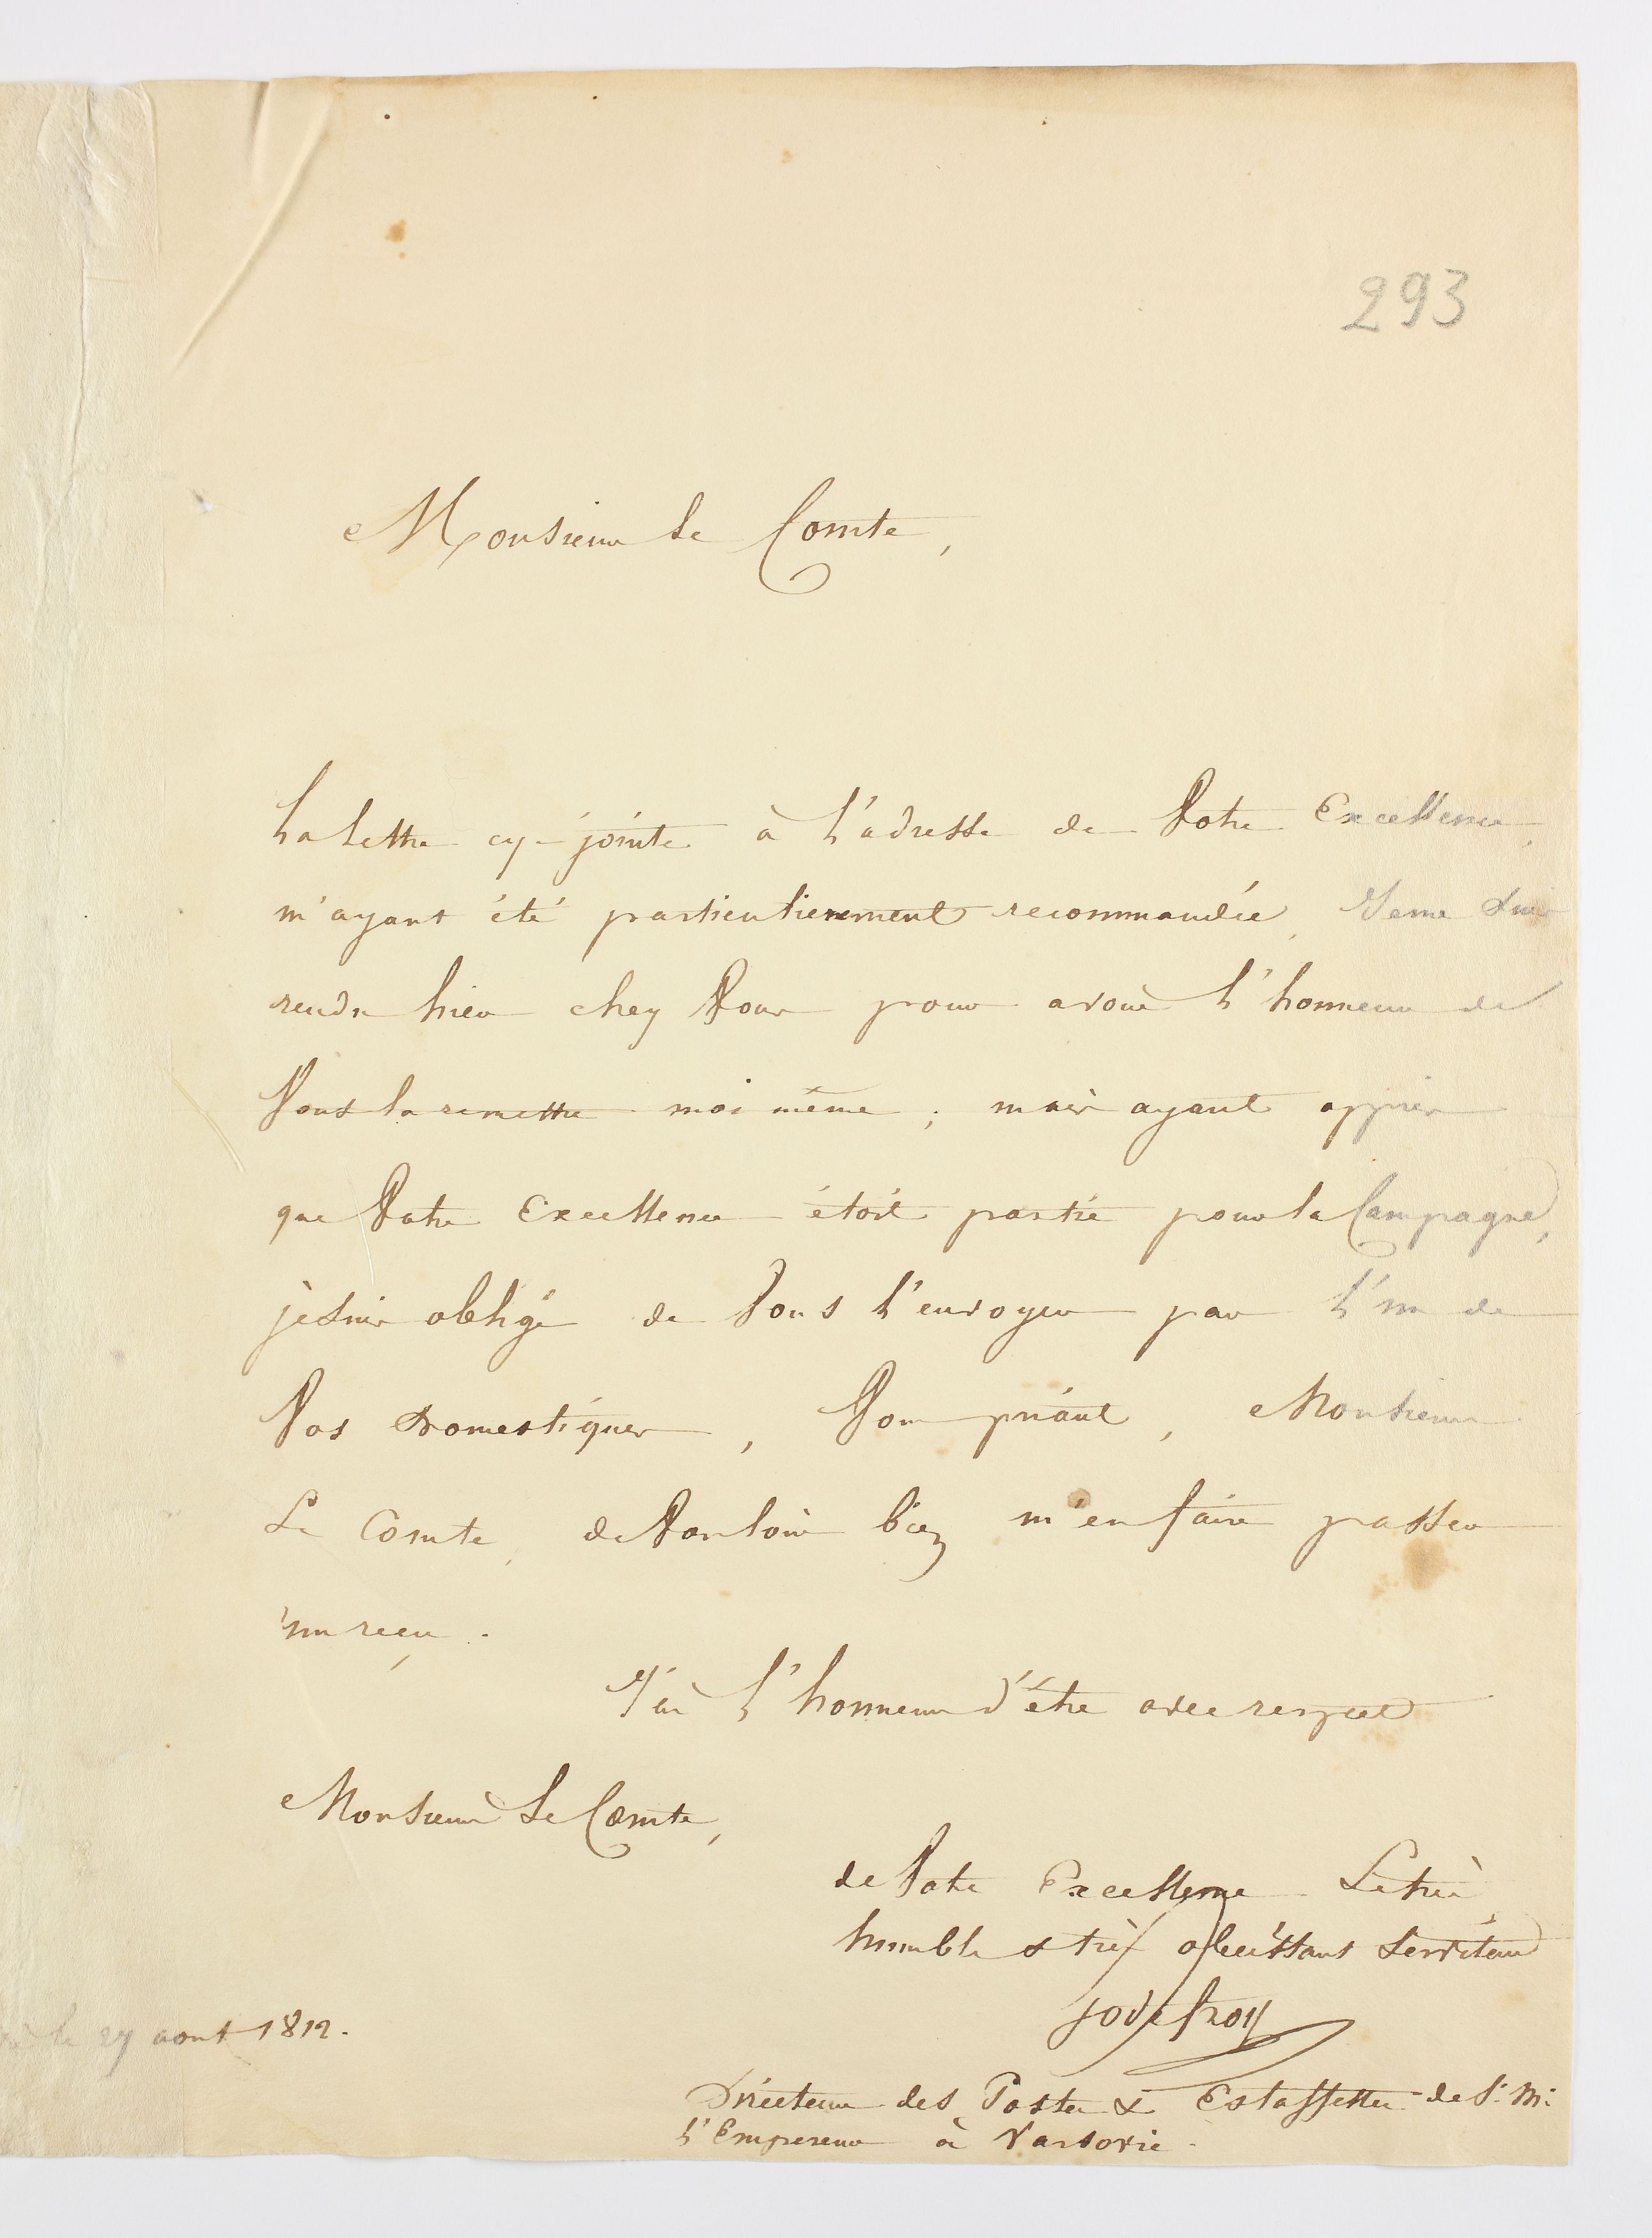 293
Monsieur Le Comte,
La Lettre cy-jointe à l'adresse de Votre Excellence,
m'ayant été particulierement recommandée, Je me suis
rendu hier chez Vous pour avoir l'honneur de
Vous la remettre moi même; mais ayant appris
que Votre Excellence étoit partie pour la Campagne,
je suis obligé de Vous l'envoyer par l'un de
Vos Domestiques, Vous priant, Monsieur
Le Comte, de Vouloir bien m'en faire passer
un reçu.
J'ai l'honneur d'être avec respect
Monsieur Le Comte,
de Votre Excellence Le très
humble & très obeissant Serviteur
Godefroy
le 27 aout 1812.
Directeur des Postes & Estaffettes de S. M.
l'Empereur à Varsovie.